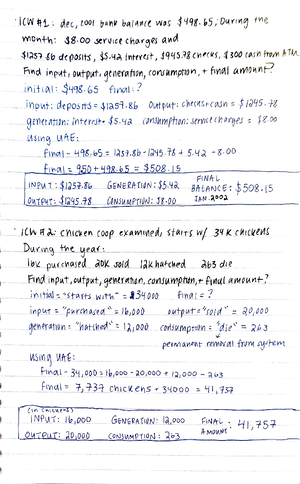 ICW #1: dec, 2001 bank balance was $498.65, During the
month: $8.00 service charges and
$1257.86 deposits, $5.42 interest, $945.78 checks, $300 cash from ATM
Find input, output, generation, consumption, + final amount?
initial: $498.65 final: ?
input: deposits = $1257.86 output: checks + cash = $1245.78
generation: interest = $5.42 consumption: service charges = $8.00
using UAE:
final - 498.65 = 1257.86 - 1245.78 + 5.42 - 8.00
final = 9.50 + 498.65 = $508.15
INPUT: $1257.86 GENERATION: $5.42 FINAL BALANCE: $508.15
OUTPUT: $1245.78 CONSUMPTION: $8.00 JAN. 2002
ICW #2: chicken coop examined, starts w/ 34K chickens
During the year:
16K purchased 20K sold 12K hatched 263 die
Find input, output, generation, consumption, + final amount?
initial = "starts with" = 34000 final = ?
input = "purchased" = 16,000 output = "sold" = 20,000
generation = "hatched" = 12,000 consumption = "die" = 263
permanent removal from system
using UAE:
final - 34,000 = 16,000 - 20,000 + 12,000 - 263
final = 7,737 chickens + 34000 = 41,737
(in chickens)
INPUT: 16,000 GENERATION: 12,000 FINAL AMOUNT: 41,737
OUTPUT: 20,000 CONSUMPTION: 263